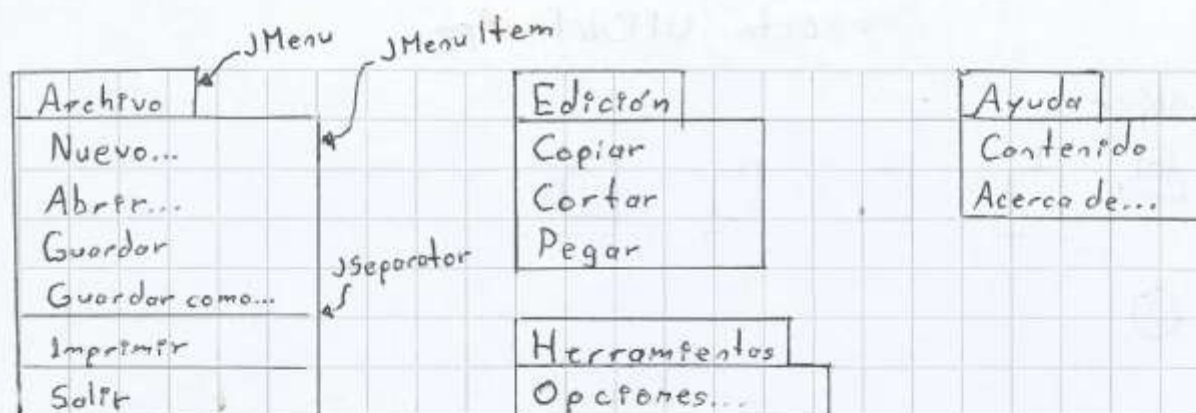 JMenu
JMenuItem
Archivo
Nuevo...
Abrir...
Guardar
Guardar como...
JSeparator
Imprimir
Salir
Edición
Copiar
Cortar
Pegar
Herramientas
Opciones...
Ayuda
Contenido
Acerca de...